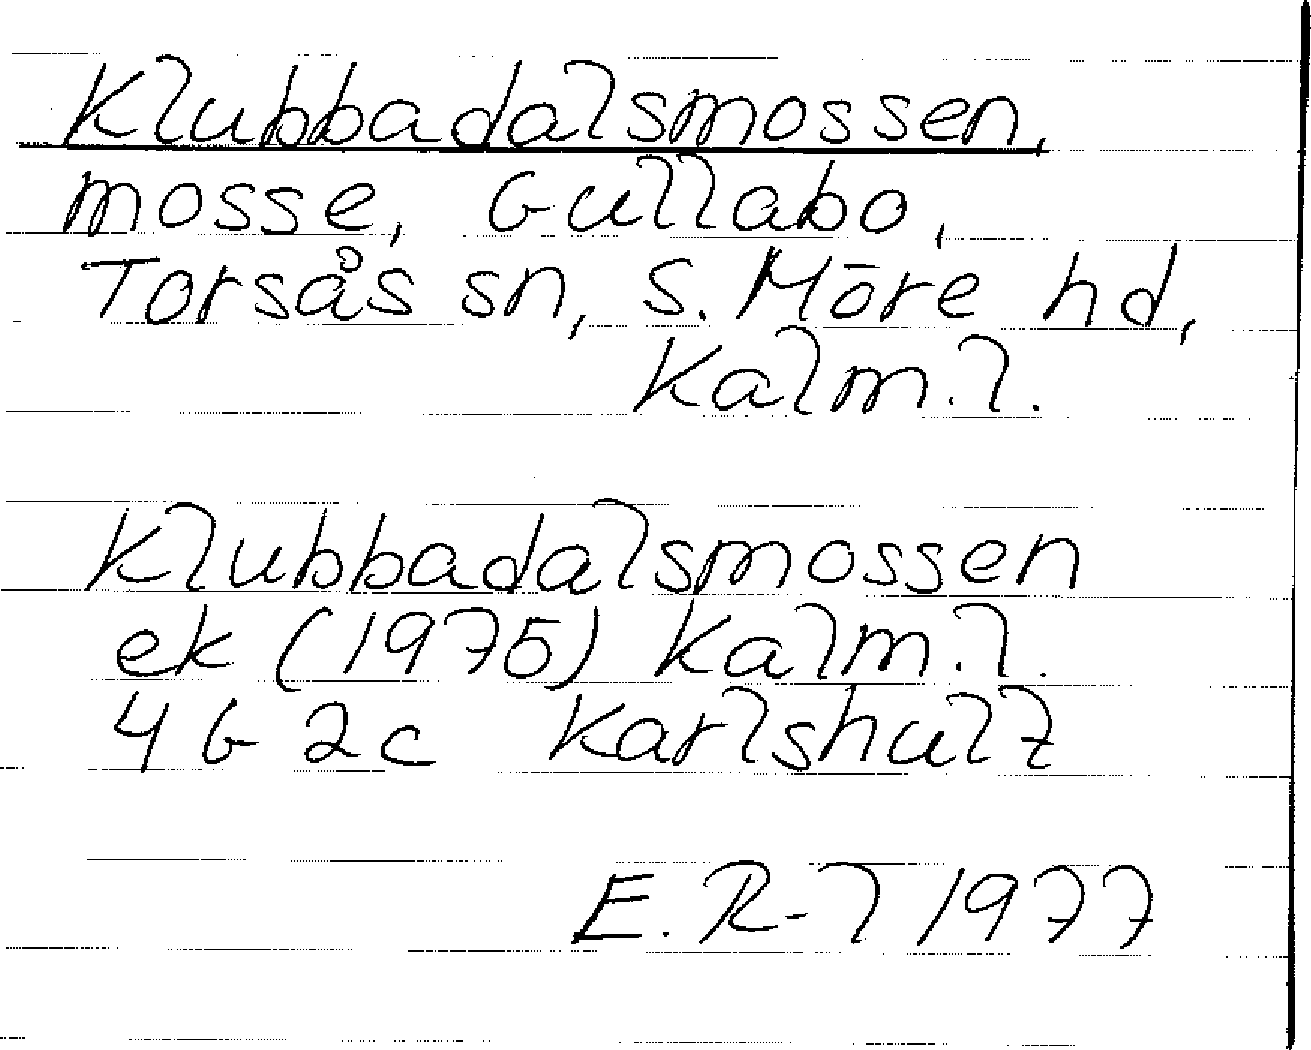 Klubbadalsmossen,
mosse, Gullabo,
Torsås sn, S. Möre hd,
Kalm.l.
Klubbadalsmossen
ek (1975) Kalm.l.
4 G 2c Karlshult
E. R-l 1977